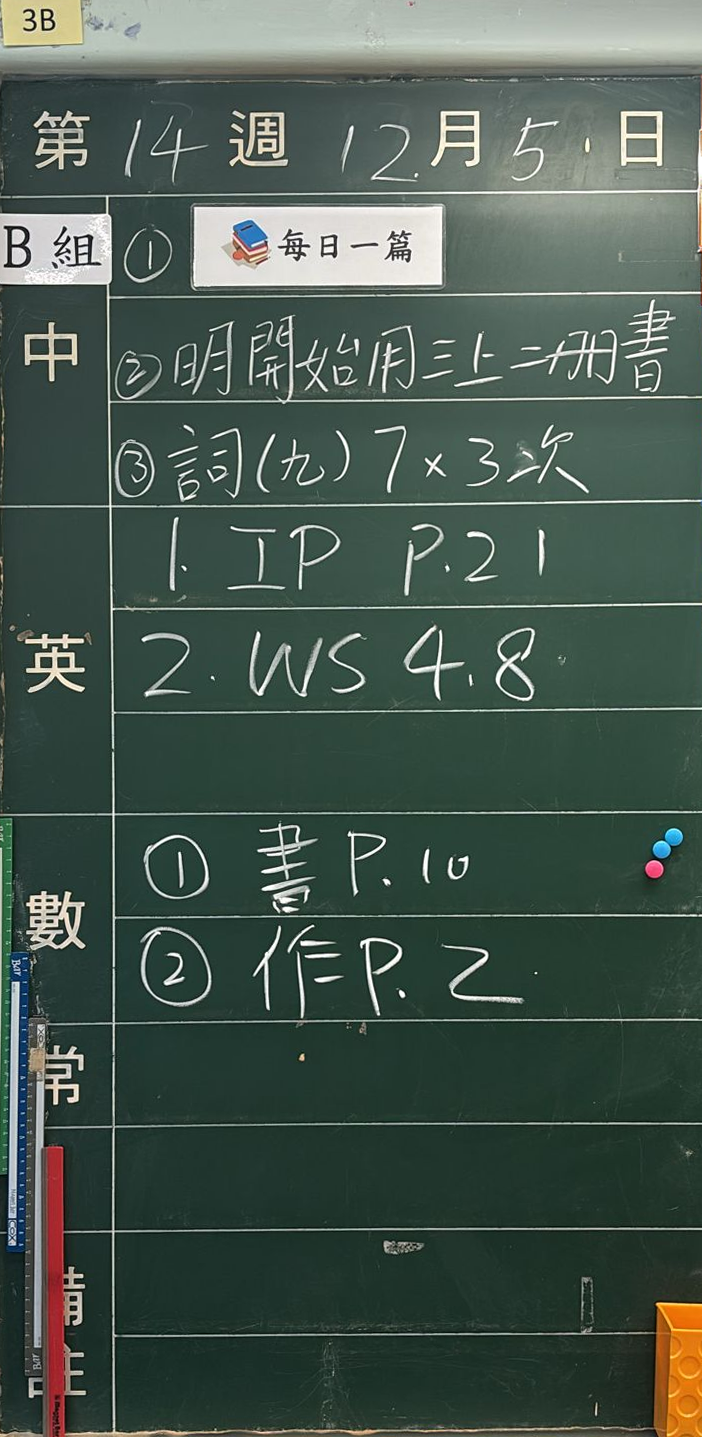 3B
第 14 週 12 月 5 日
B 組 ① 每日一篇
中 ② 明開始用三上二冊書
③ 詞(九) 7×3次
1. IP P.21
英 2. WS 4.8
① 書 P.10
數 ② 作 P.2
常
備註